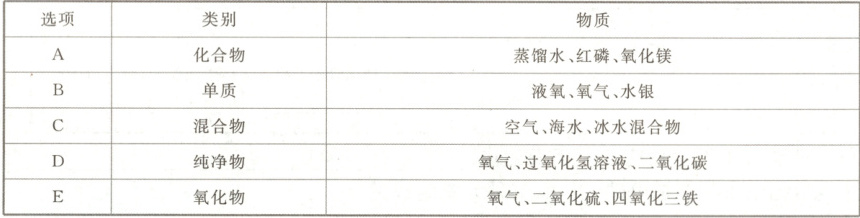 选项 类别 物质
A 化合物 蒸馏水、红磷、氧化镁
B 单质 液氧、氧气、水银
C 混合物 空气、海水、冰水混合物
D 纯净物 氧气、过氧化氢溶液、二氧化碳
E 氧化物 氧气、二氧化硫、四氧化三铁